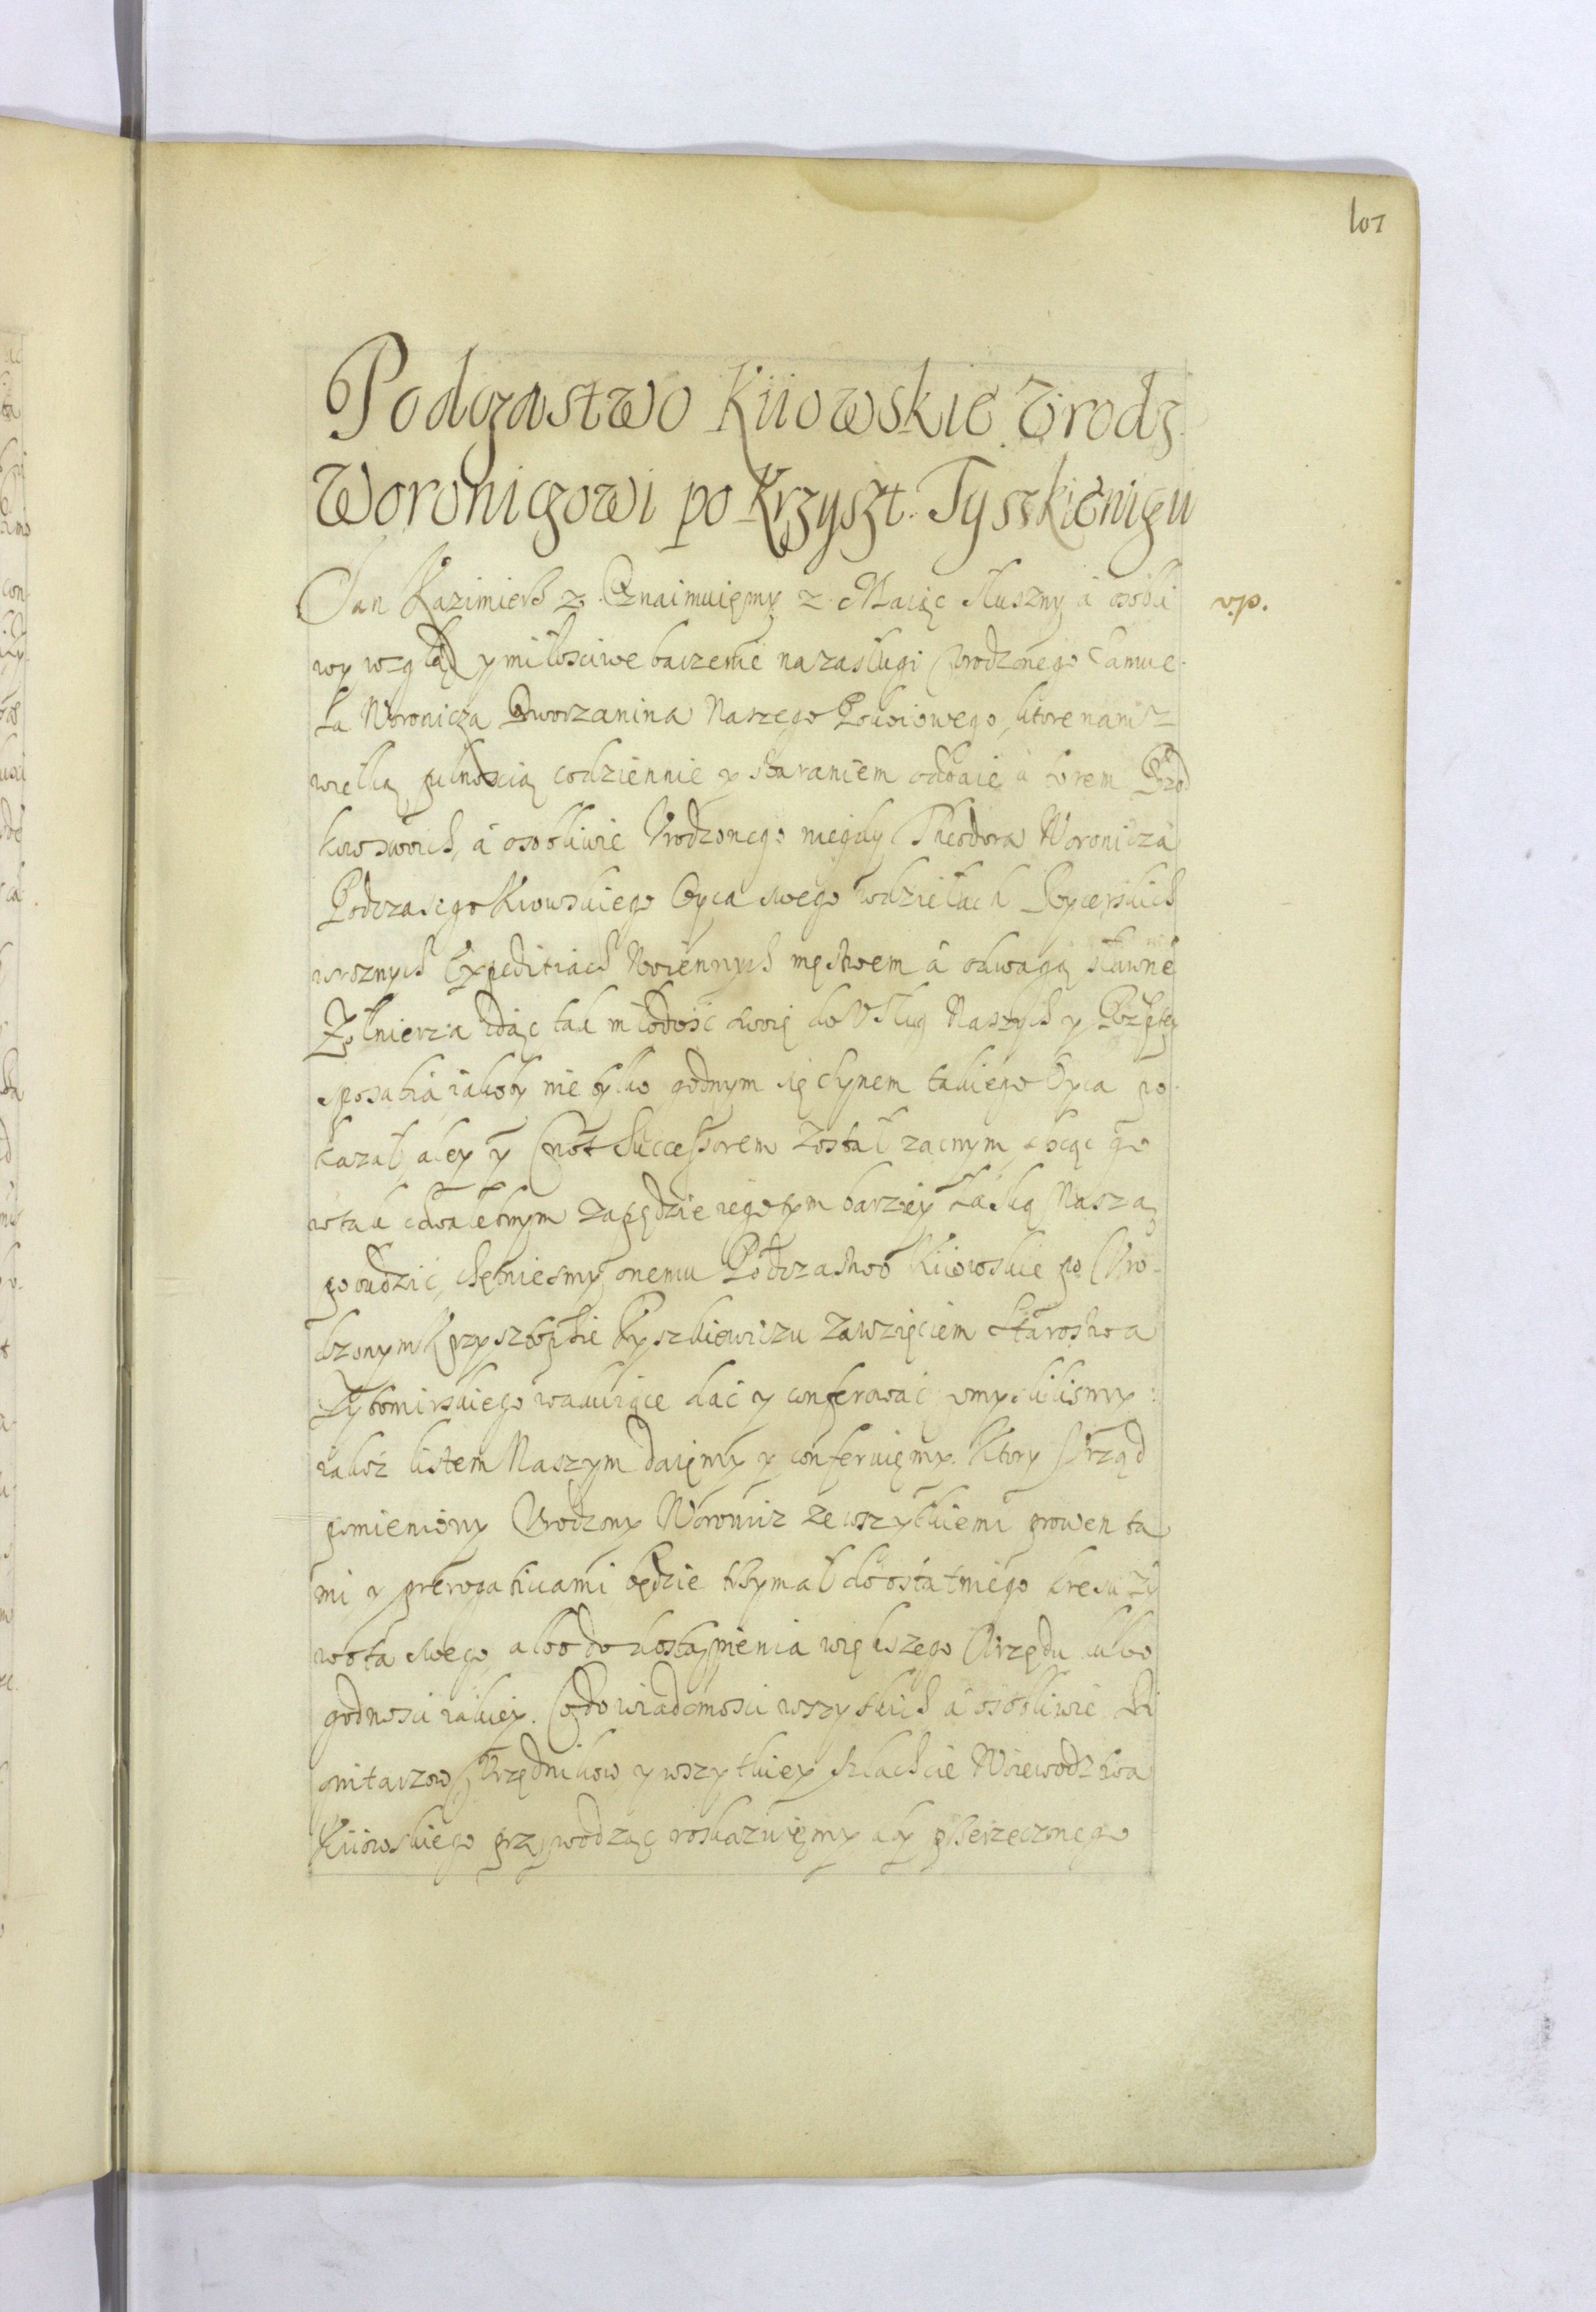 107
Podczastwo Kiiowskie Vrodz.
Woroniczowi po Krzyszt. Tyszkiewiczu
Jan Kazimierz z. Oznaimuięmy z. Maiąc słuszny á osobli
v.p.
wy wzgląd y miłosciwe baczenie na zasługi Vrodzonego Samue-
la Woronicza Dworzanina Naszego Pokoiowego, ktore nam z
wielką pilnoscią codziennie y staraniem oddaie á torem Przod
kow swoich, á osobliwie Vrodzonego niegdy Theodora Woronicza
Podczaszego Kiowskiego Oyca swego w dziełach Rycerskich
w roznych Expeditiach Woiennych męstwem á odwagą sławne
Żołnierza idąc tak młodość swoię do Vsług Naszych y Rzeptey
sposabia, iakoby nie tylko godnym się synem takiego Oyca po-
kazał, ale y Cnot Successorem został zacnym, chcąc go
w tak chwalebnym zapędzie iego tym barziey łaską Naszą
pobudzić, chętniesmy onemu Podczastwo Kiiowskie po Vro-
dzonym Krzysztophie Tyszkiewiczu za wzięciem Starostwa
Żytomirskiego wakuiące dać y conferować vmyslilismy:
iakoż listem Naszym daięmy y conferuięmy. Ktory Vrząd
pomieniony Vrodzony Woronicz ze wszytkiemi prowenta
mi y prerogatiwami będzie trzymał do ostatniego kresu ży
wota swego, albo do dostąpienia większego Vrzędu lubo
godnosci iakiey. Co do wiadomosci wszytkich á osobliwie Di
gnitarzow, Vrzędnikow y wszytkiey szlachcie Woiewodztwa
Kiiowskiego przywodząc roskazuięmy aby pherzeczonego